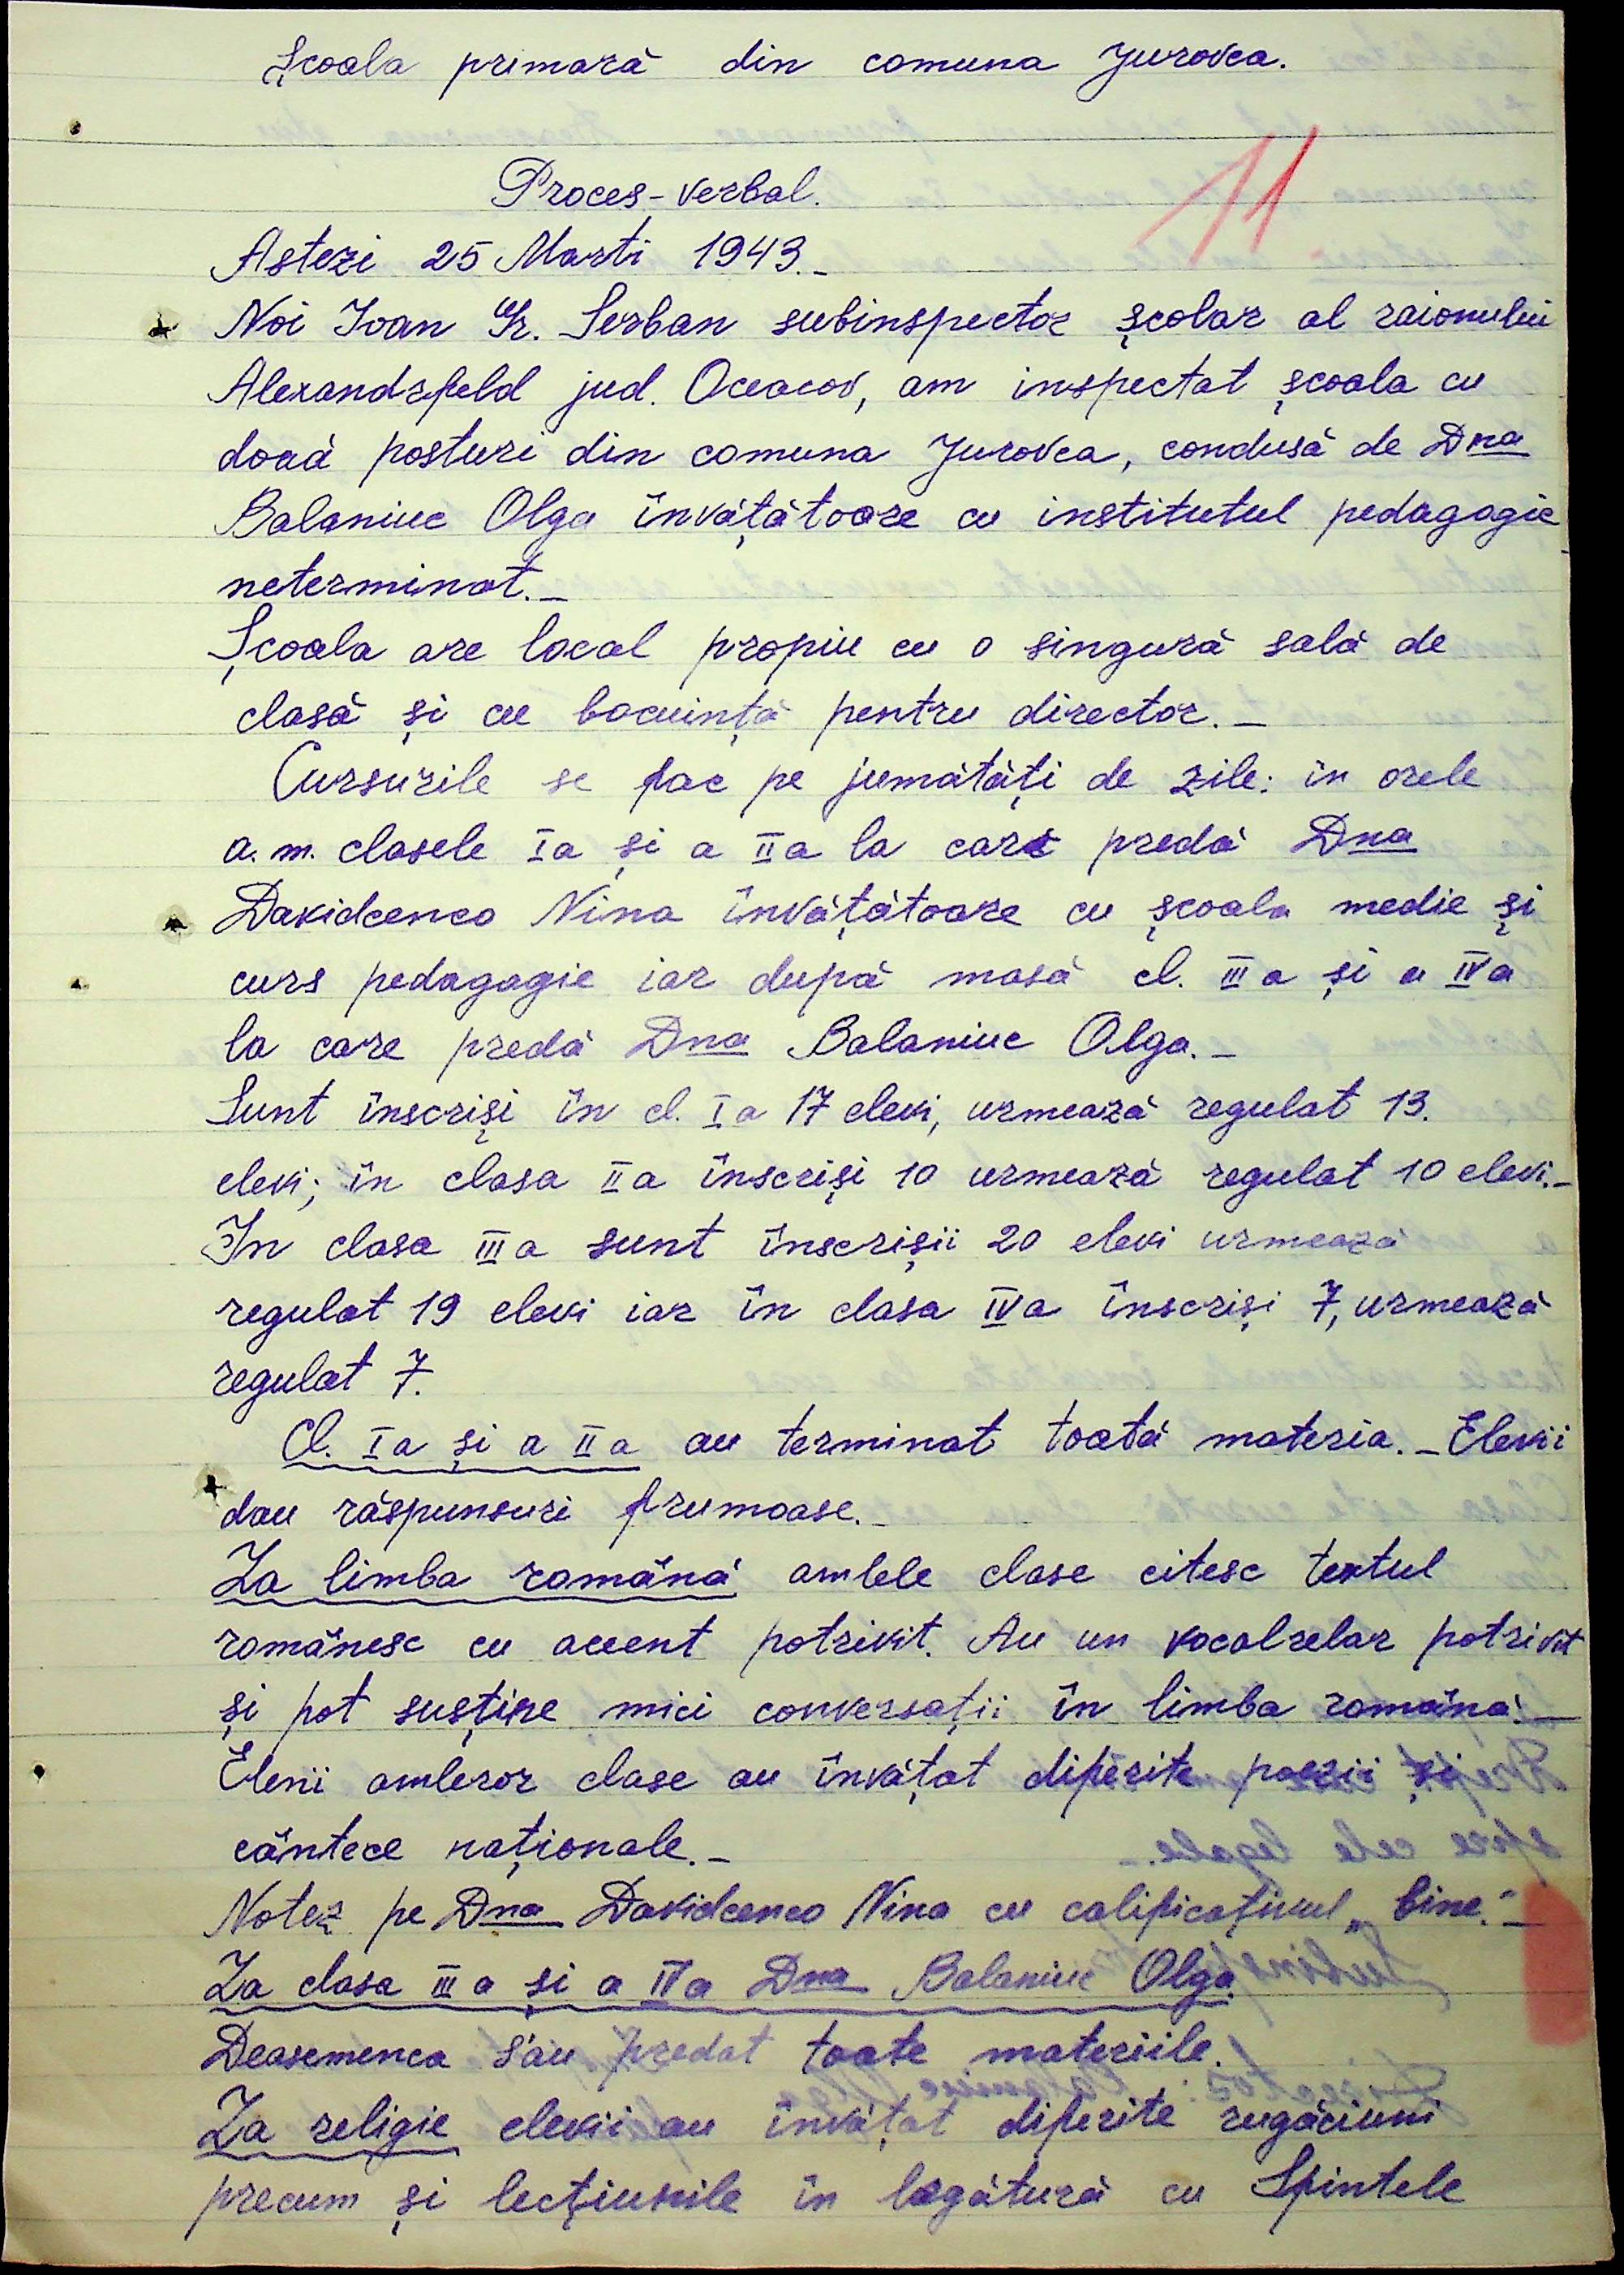 Școala primară din comuna Jurovca.
11
Proces-verbal.
Astezi 25 Marti 1943.-
Noi Ioan Gr. Serban subinspector școlar al raionului
Alexandrfeld jud. Oceacov, am inspectat școala cu
două posturi din comuna Jurovca, condusă de Dna
Balaniuc Olga învățătoare cu institutul pedagogic
neterminat.-
Școala are local propiu cu o singură sală de
clasă și cu locuință pentru director.-
Cursurile se fac pe jumătăți de zile: în orele
a.m. clasele Ia și a IIa la care predă Dna
Davidcenco Nina învățătoare cu școala medie și
curs pedagogic iar după masă cl. IIIa și a IVa
la care predă Dna Balaniuc Olga.-
Sunt înscriși în cl. Ia 17 elevi, urmează regulat 13.
elevi; în clasa IIa înscriși 10 urmează regulat 10 elevi.-
In clasa IIIa sunt înscrișii 20 elevi urmează
regulat 19 elevi iar în clasa IVa înscriși 7, urmează
regulat 7.
Cl. Ia și a IIa au terminat toată materia.-Elevii
dau răspunsuri frumoase.-
La limba română amlele clase citesc textul
românesc cu accent potrivit. Au un vocalrelar potrivit
și pot susține mici conversații în limba română.-
Elevii amleror clase au învățat diferite poezii și
cântece naționale.-
Notez pe Dna Davidcenco Nina cu calificațiunul „bine.”-
La clasa IIIa și a IVa Dna Balaniuc Olga.
Deasemenea s'au predat toate materiile.
La religie elevii au învățat diferite rugăciuni
precum și lecțiunile în legătură cu Sfintele